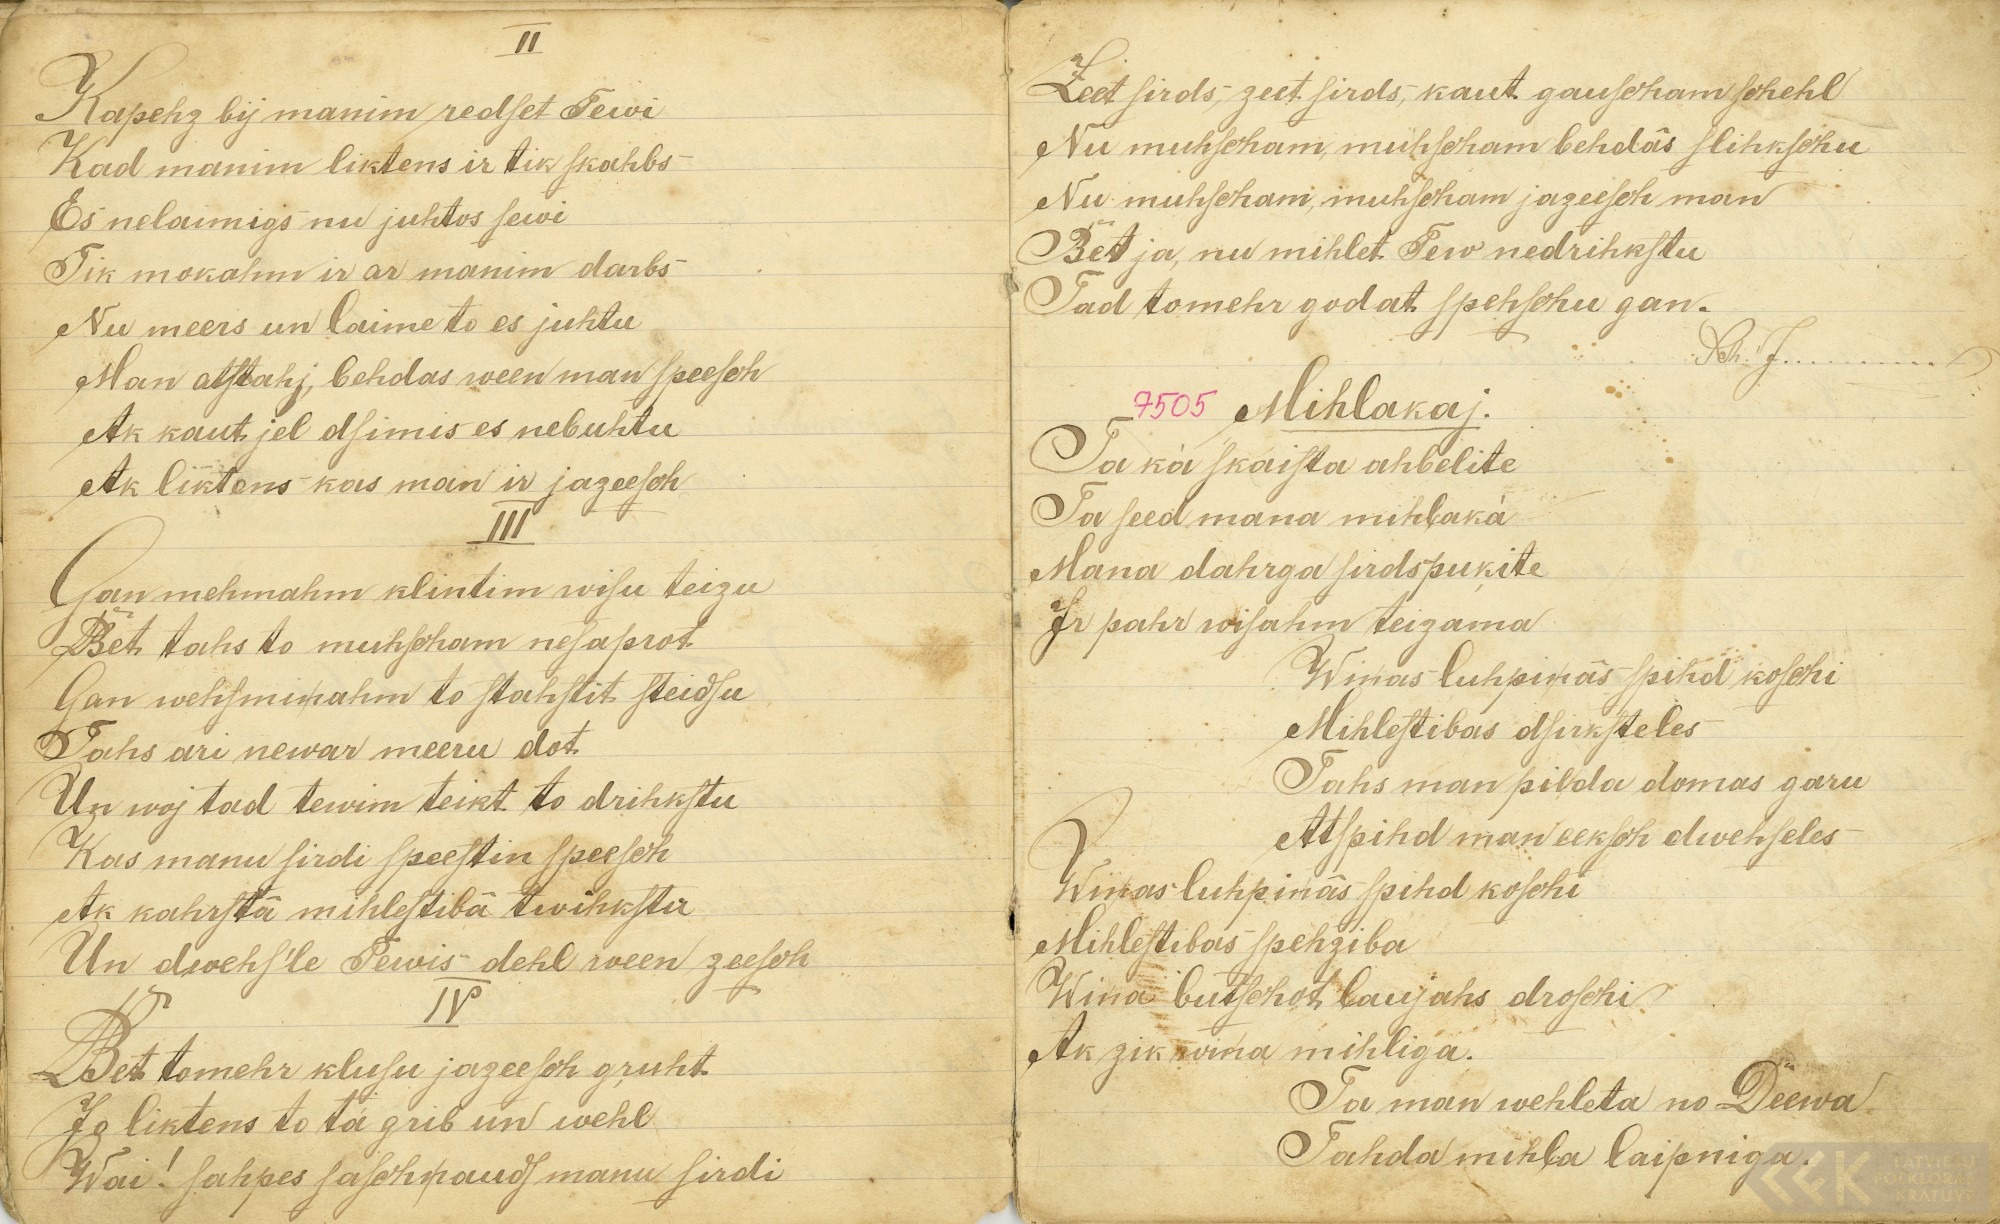 II
Kapehz bij manim redſet Tewi
Kad manim liktens ir tik ſkahbs
Es nelaimigs nu juhtos ſewi
Tik mokahm ir ar manim darbs
Nu meers un laime to es juhtu
Man atſtahj, behdas ween man ſpeeſch
Ak kaut jel dſimis es nebuhtu
Ak liktens kas man ir jazeeſch
III
Gan mehmahm klintim wiſu teizu
Bet tahs to muhſcham neſaprot
Gan wehſmiņahm to ſtahſtit ſteidſu
Tahs ari newar meeru dot
Un woj tad tewim teikt to drihkſtu
Kas manu ſirdi ſpeeſtin ſpeeſch
Ak kahrſtā mihleſtibā twihkſtu
Un dwehſ'le Tewis dehl ween zeeſch
IV
Bet tomehr kluſu jazeeſch gruht
Jo liktens to tá grib un wehl
Wai! ſahpes ſaſchņaudſ manu ſirdi
Zeet ſirds, zeet ſirds, kaut gauſcham ſchehl
Nu muhſcham, muhſcham behdās ſlihkſchu
Nu muhſcham, muhſcham jazeeſch man
Bet ja, nu mihlet Tew nedrihkſtu
Tad tomehr godat ſpehſchu gan.
Sch. J..........
7505 Mihlakaj.
Ta ká ſkaiſta ahbelite
Ta ſeed mana mihļaká
Mana dahrga ſirdspuķite
Ir pahr wiſahm teizama
Wiņas luhpiņās ſpihd koſchi
Mihleſtibas dſirkſteles
Tahs man pilda domas garu
Atſpihd man eekſch dwehſeles
Wiņas luhpiņās ſpihd koſchi
Mihleſtibas ſpehziba
Wiņa butſchot ļaujahs droſchi
Ak zik wiņa mihliga.
Ta man wehleta no Deewa
Tahda mihļa laipniga.
LATVIEŠU
FOLKLORAS
KRĀTUVE